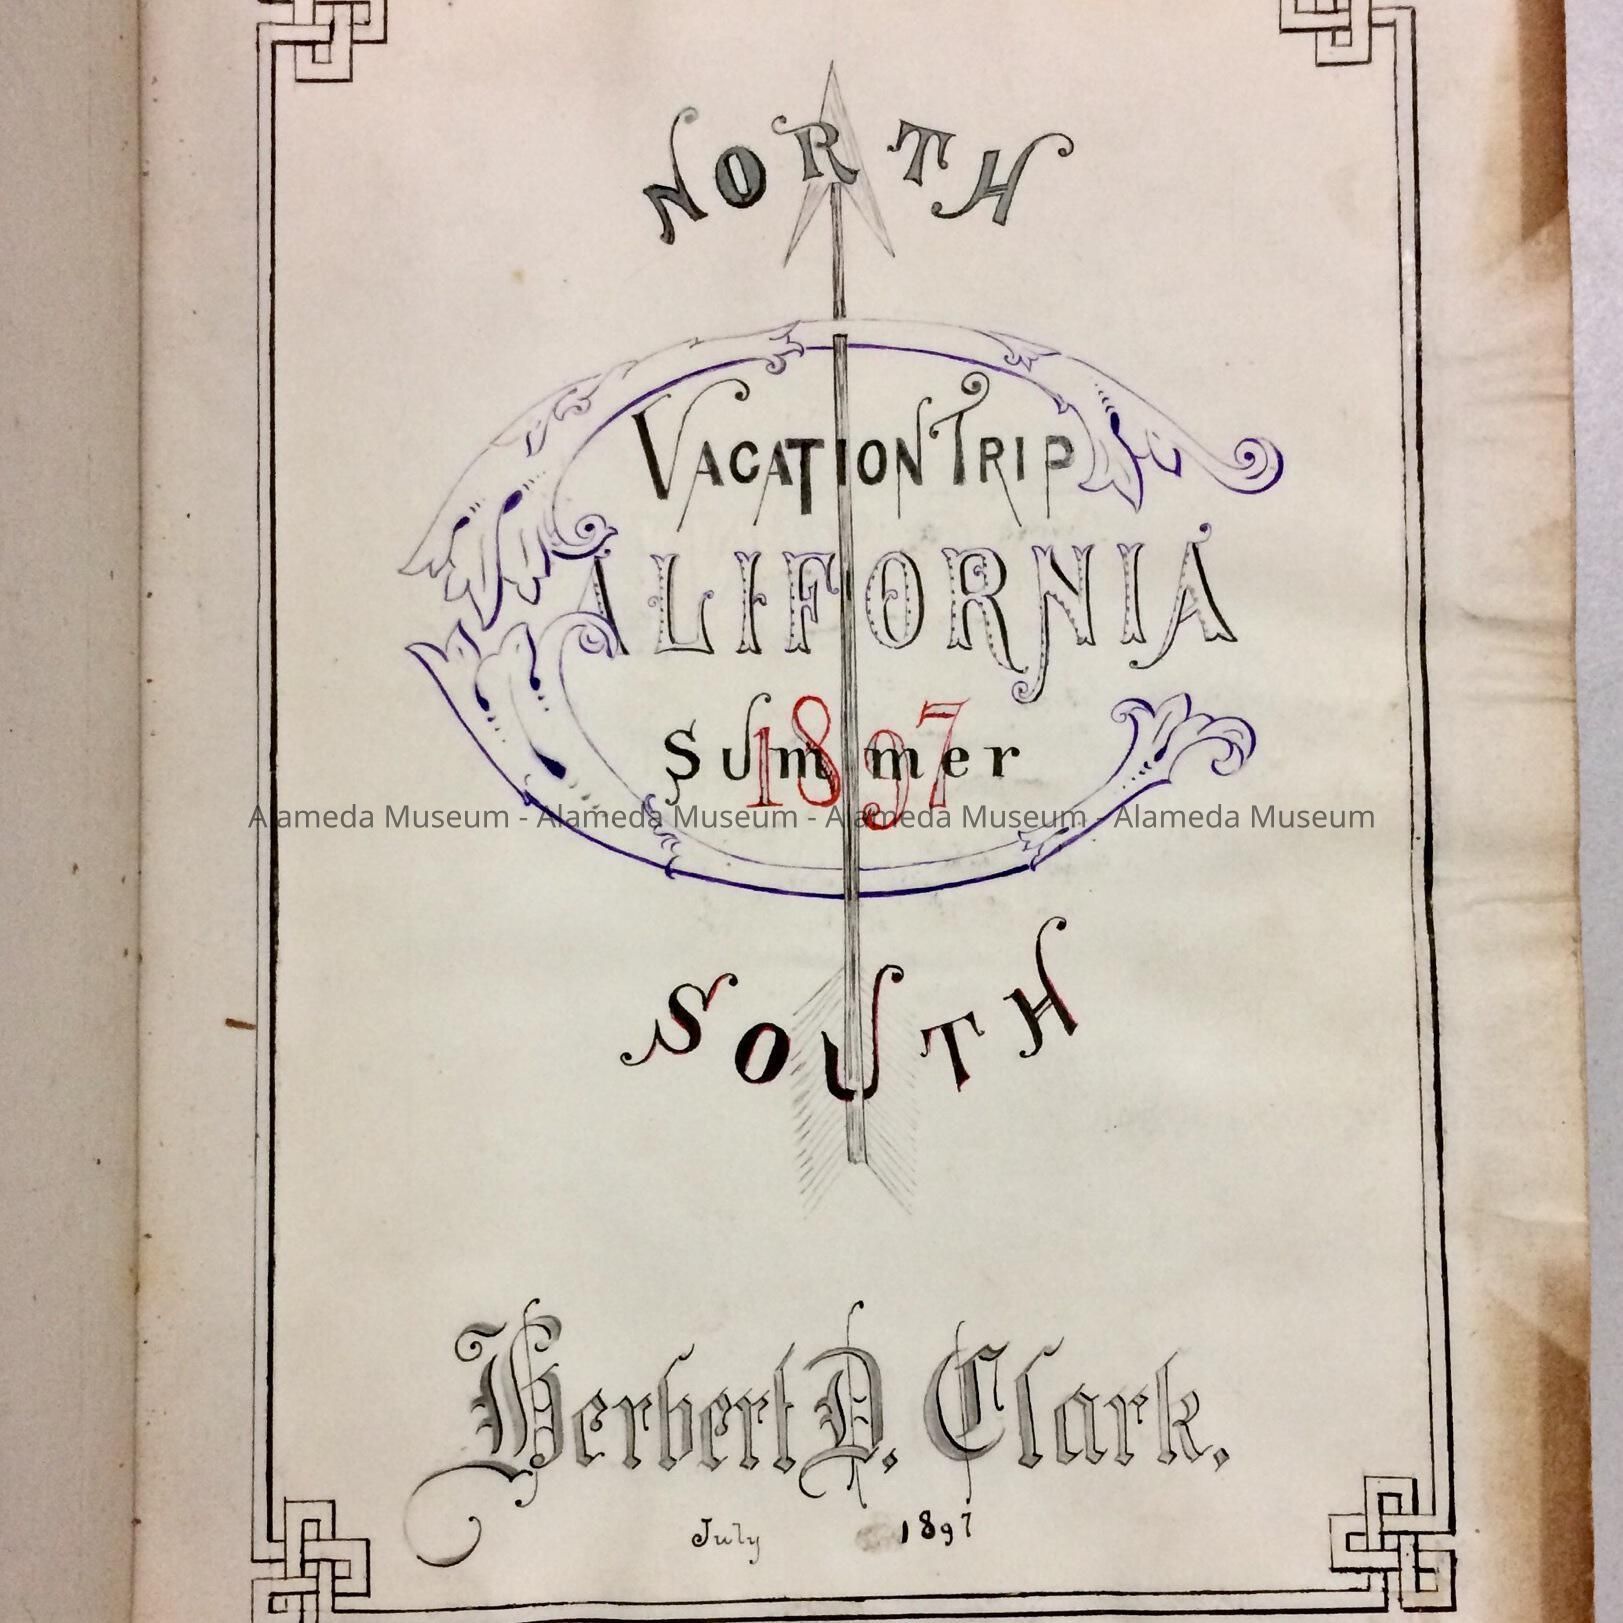 NORTH
VACATION TRIP
CALIFORNIA
Summer
1897
Alameda Museum - Alameda Museum - Alameda Museum - Alameda Museum
SOUTH
Herbert D. Clark.
July 1897